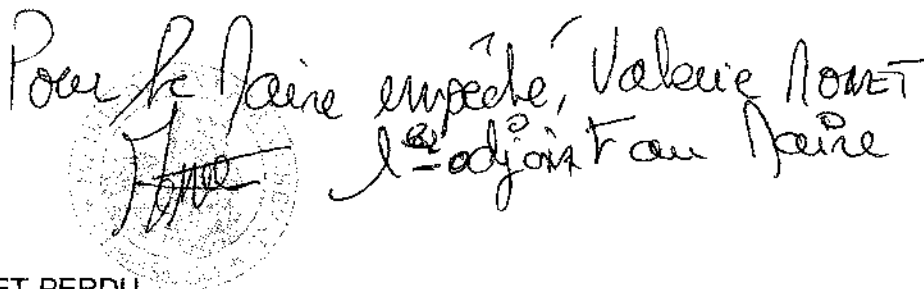 Pour le Maire empêché, Valérie MONET
1er adjoint au Maire
ET PERDU